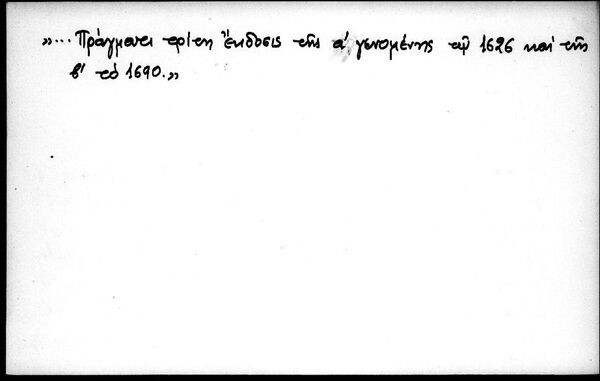 »... Πράγματι τρίτη ἔκδοσις τῆς α΄ γενομένης τῷ 1626 καί τῆς
β΄ τό 1690.»